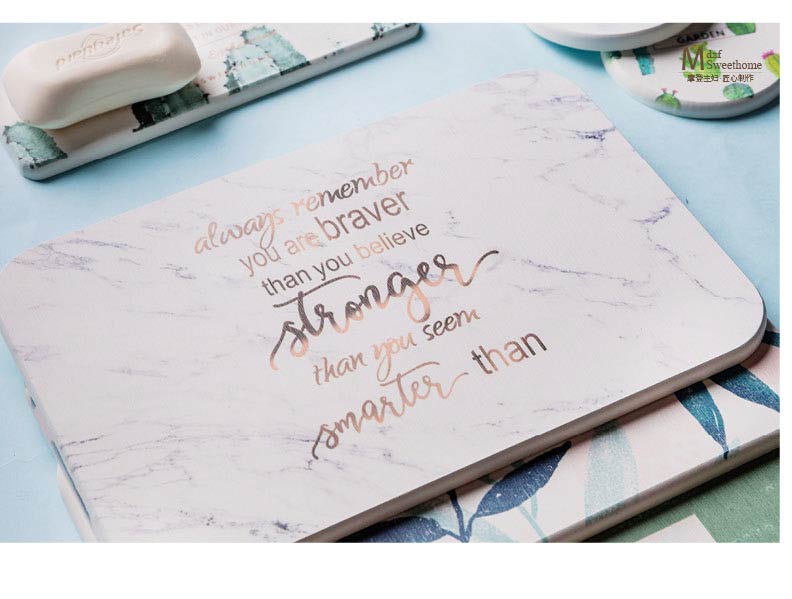 Safeguard
GARDEN
Mdzf
Sweethome
摩登主妇·匠心制作
always remember
you are braver
than you believe
stronger
than you seem
smarter than